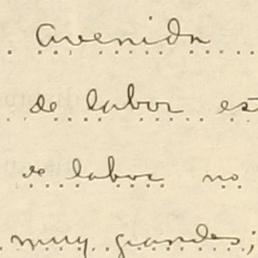 avenida
de labor es
de labor no
muy grandes;